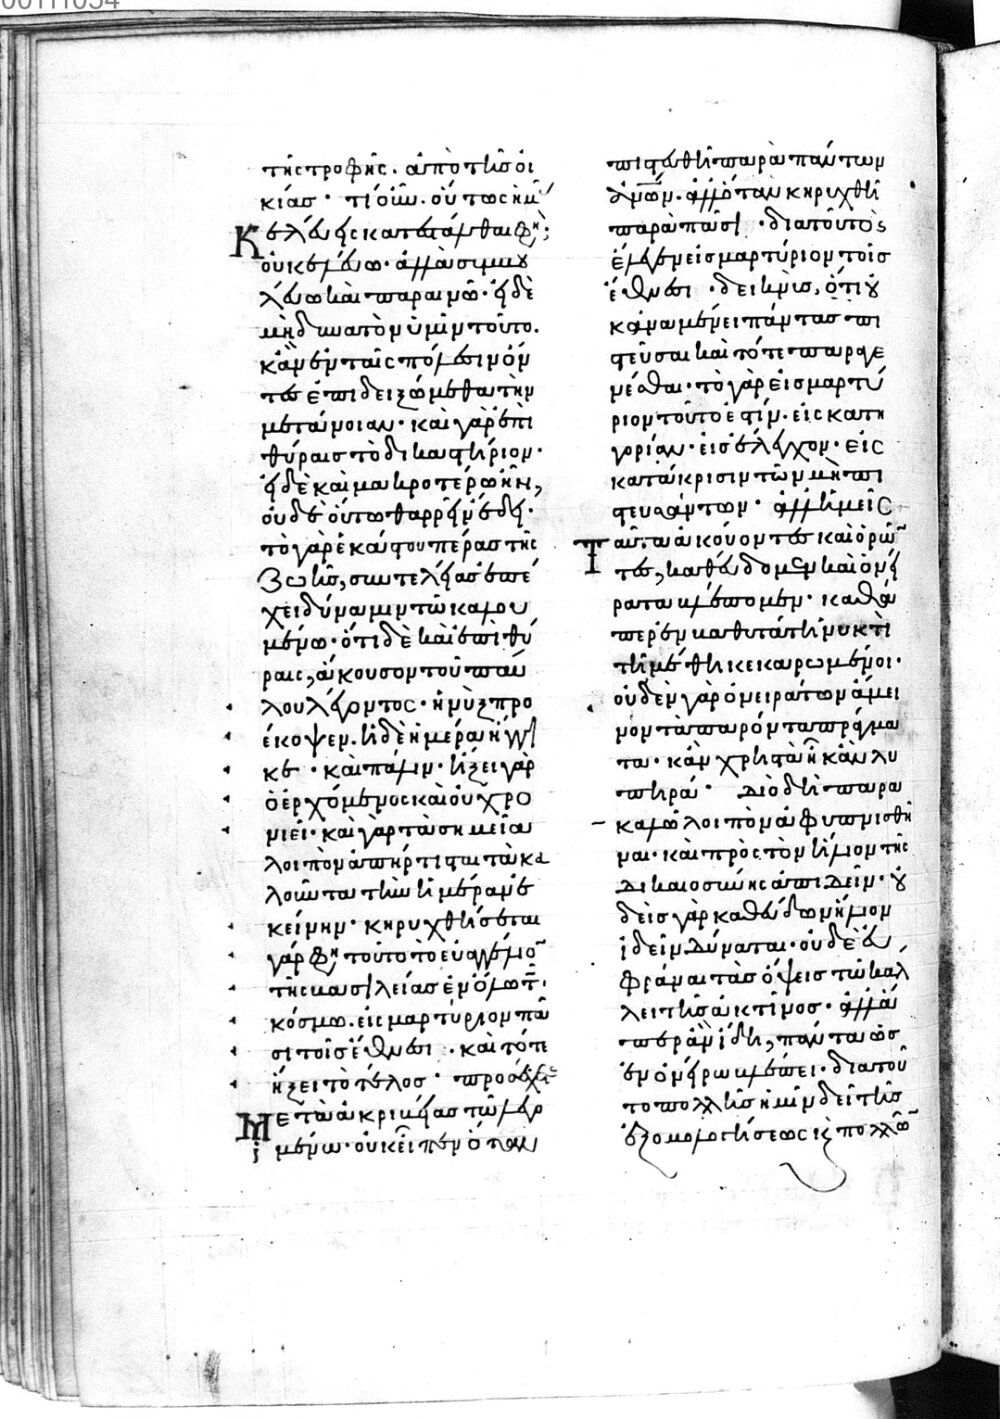 της τροφῆς. ἀπὸ τῆς οἰ
κίας· τί οὖν. οὕτως ἡμᾶς
κελεύεις καταστάνθαι φησί;
οὐ κελεύω. ἀλλὰ συμβου
λεύω καὶ παραινῶ. εἰ δὲ
μὴ δυνατὸν ὑμῖν τοῦτο.
κἂν ἐν ταῖς πόλεσιν ὄν
τες ἐπιδειξώμεθα τὴν
μετάνοιαν· καὶ γὰρ ἐπὶ
θύραις τὸ δικαστήριον·
εἰ δὲ καὶ μακροτέρω ἦν,
οὐδὲ οὕτω θαρρεῖν ἔδει·
τὸ γὰρ ἑκάστου πέρας τῆς
ζωῆς, συντελείας ἐπέ
χει δύναμιν τῷ καλου
μένω· ὅτι δὲ καὶ ἐπὶ θύ
ραις, ἄκουσον τοῦ παύ
λου λέγοντος· ἡ νὺξ προ
έκοψεν. ἡ δὲ ἡμέρα ἤγγι
κε· καὶ πάλιν· ἥξει γὰρ
ὁ ἐρχόμενος καὶ οὐ χρο
νιεῖ· καὶ γὰρ τὰ σημεῖα
λοιπὸν ἀπήρτισται τὰ κα
λοῦντα τὴν ἡμέραν ἐ
κείνην· κηρυχθήσεται
γάρ φησι τοῦτο τὸ εὐαγγέλιον
τῆς βασιλείας ἐν ὅλω τῷ
κόσμω. εἰς μαρτύριον πᾶ
σι τοῖς ἔθνεσι· καὶ τότε
ἥξει τὸ τέλος· προσέχετε
μετὰ ἀκριβείας τῷ λεγο
μένω· οὐκ εἶπεν ὅταν
πιστευθῆ παρὰ πάντων
ἀνθρώπων. ἀλλ' ὅταν κηρυχθῆ
παρὰ πᾶσι· διὰ τοῦτο
ἔλεγεν εἰς μαρτύριον τοῖς
ἔθνεσι· δεικνὺς, ὅτι οὐ
κ ἀναμένει πάντας πι
στεῦσαι καὶ τότε παραγε
νέσθαι· τὸ γὰρ εἰς μαρτύ
ριον τοῦτο ἐστίν. εἰς κατη
γορίαν. εἰς ἔλεγχον. εἰς
κατάκρισιν τῶν μὴ πι
στευσάντων· ἀλλ' ἡμεῖς
ταῦτα ἀκούοντες καὶ ὁρῶν
τες, καθεύδομεν καὶ ὀνεί
ρατα βλέπομεν· καθά
περ ἐν βαθυτάτη νυκτὶ
τῆ μέθη κεκαρωμένοι·
οὐδὲν γὰρ ὀνειράτων ἄμει
νον τὰ παρόντα πράγμα
τα. κἂν χρηστὰ ἦ κἂν λυ
πηρά· διὸ δὴ παρα
καλῶ λοιπὸν ἀφυπνισθῆ
ναι· καὶ πρὸς τὸν ἥλιον τῆς
δικαιοσύνης ἀπιδεῖν. οὐ
δεὶς γὰρ καθεύδων ἥλιον
ἰδεῖν δύναται. οὐδὲ εὐ
φρᾶναι τὰς ὄψεις τῷ κάλ
λει τῆς ἀκτῖνος. ἀλλὰ
περ ἂν ἴδη, πάντα ὡς
ἐν ὀνείρω βλέπει· διὰ τοῦ
το πολλῆς ἡμῖν δεῖ τῆς
ἐξομολογήσεως καὶ πολλῶν